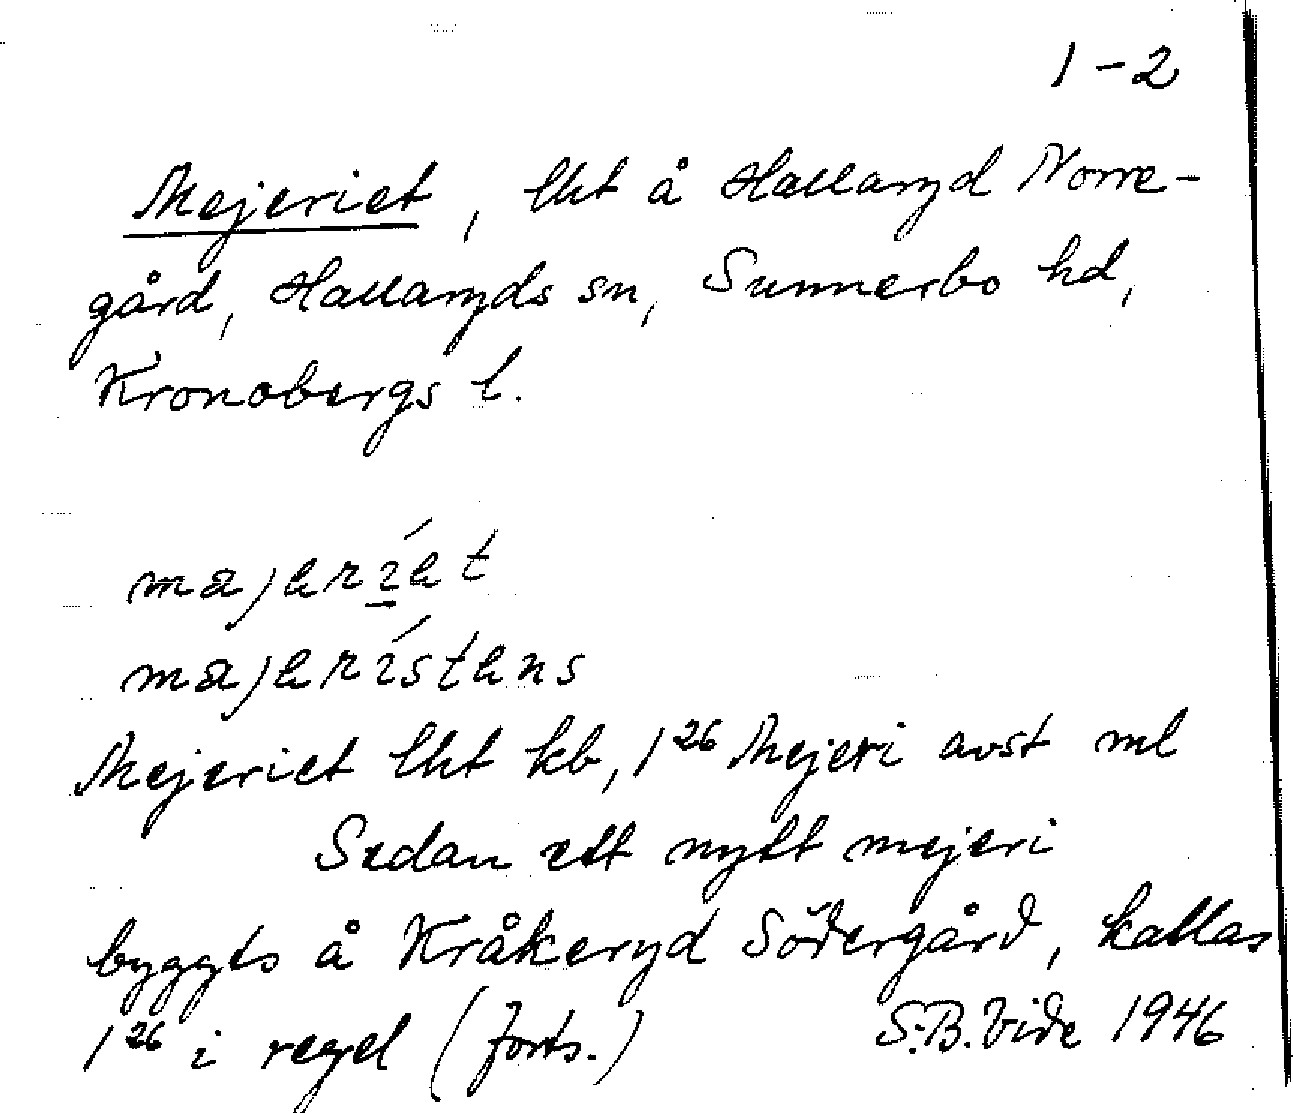 1-2
Mejeriet, lht å Hallaryd Norre-
gård, Hallaryds sn, Sunnerbo hd,
Kronobergs l.
majeríet
majerístens
Mejeriet lht kb, 1²⁶ Mejeri avst ml
Sedan ett nytt mejeri
byggts å Kråkeryd Södergård, kallas
1²⁶ i regel (forts.) S.B.Vide 1946